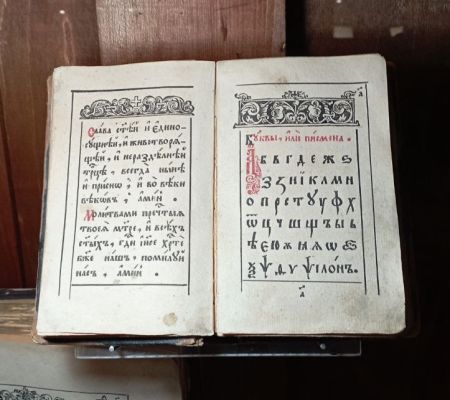 Слава ст҃ѣй и едино-
сущнѣй и животворѧ-
щей, и нераздѣлнѣй
трⷪ҇цѣ, всегда нынѣ
и приснѡ, и во вѣки
вѣкѡвъ, а҆ми́н.
Молитвами пречⷭ҇тыѧ
твоеѧ мт҃ре, и всѣхъ
ст҃ыхъ, гдⷭ҇и і҆и҃се хрⷭ҇те
бж҃е нашъ, помилуй
насъ, а҆ми́н.
а҃
Буквы, или писмена.
А б в г д е ж ѕ
з ꙁ и і к л м н
о п р с т у ф х
ѿ ц ч ш щ ъ ы ь
ѣ є ю ѫ ѧ ѡ
ѯ ѱ
а҃